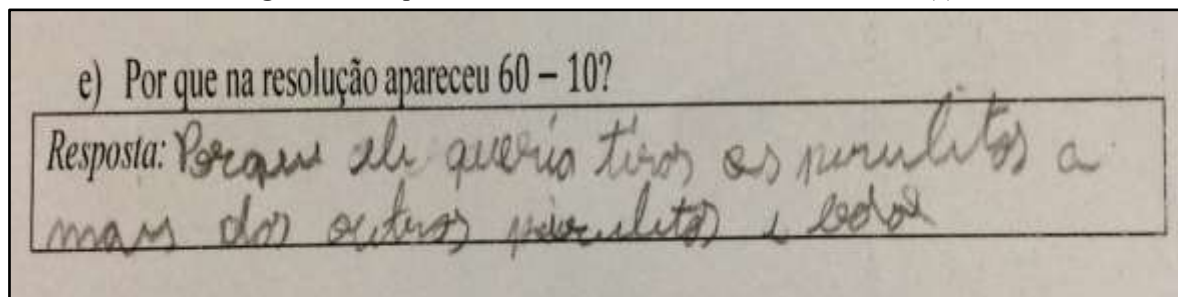 e) Por que na resolução apareceu 60 – 10?
Resposta: Porque ele queria tirar os pirulitos a
mais dos outros pirulitos